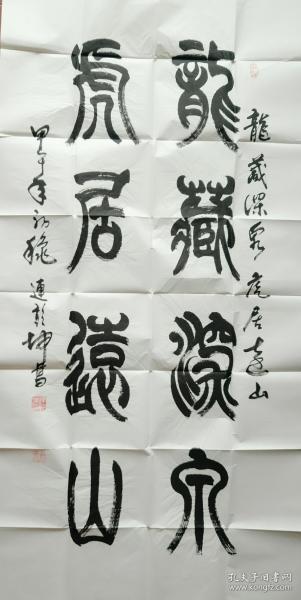 龍藏深泉虎居遠山
龍藏深泉
虎居遠山
甲午年初秋 連彭坤書
孔夫子旧书网